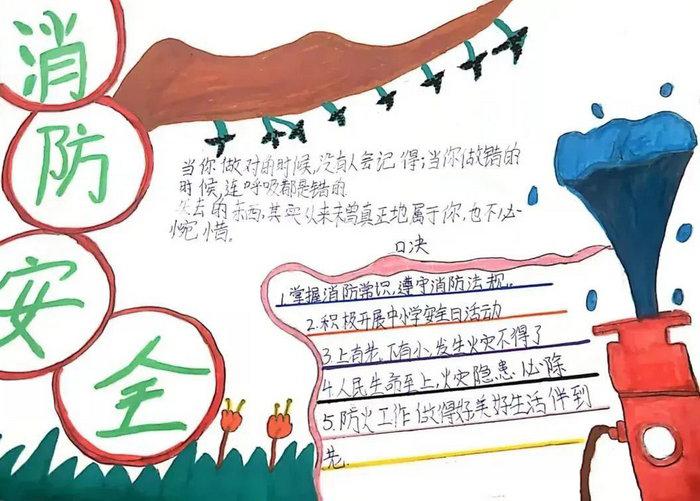 消
防
安
全
当你做对的时候,没有人会记得;当你做错的
时候,连呼吸都是错的
失去的东西,其实从来未曾真正地属于你,也不必
惋惜。
口决
1.掌握消防常识,遵守消防法规。
2.积极开展中小学安全日活动
3.上有老,下有小,发生火灾不得了
4.人民生命至上,火灾隐患必除
5.防火工作做得好美好生活伴到
老.